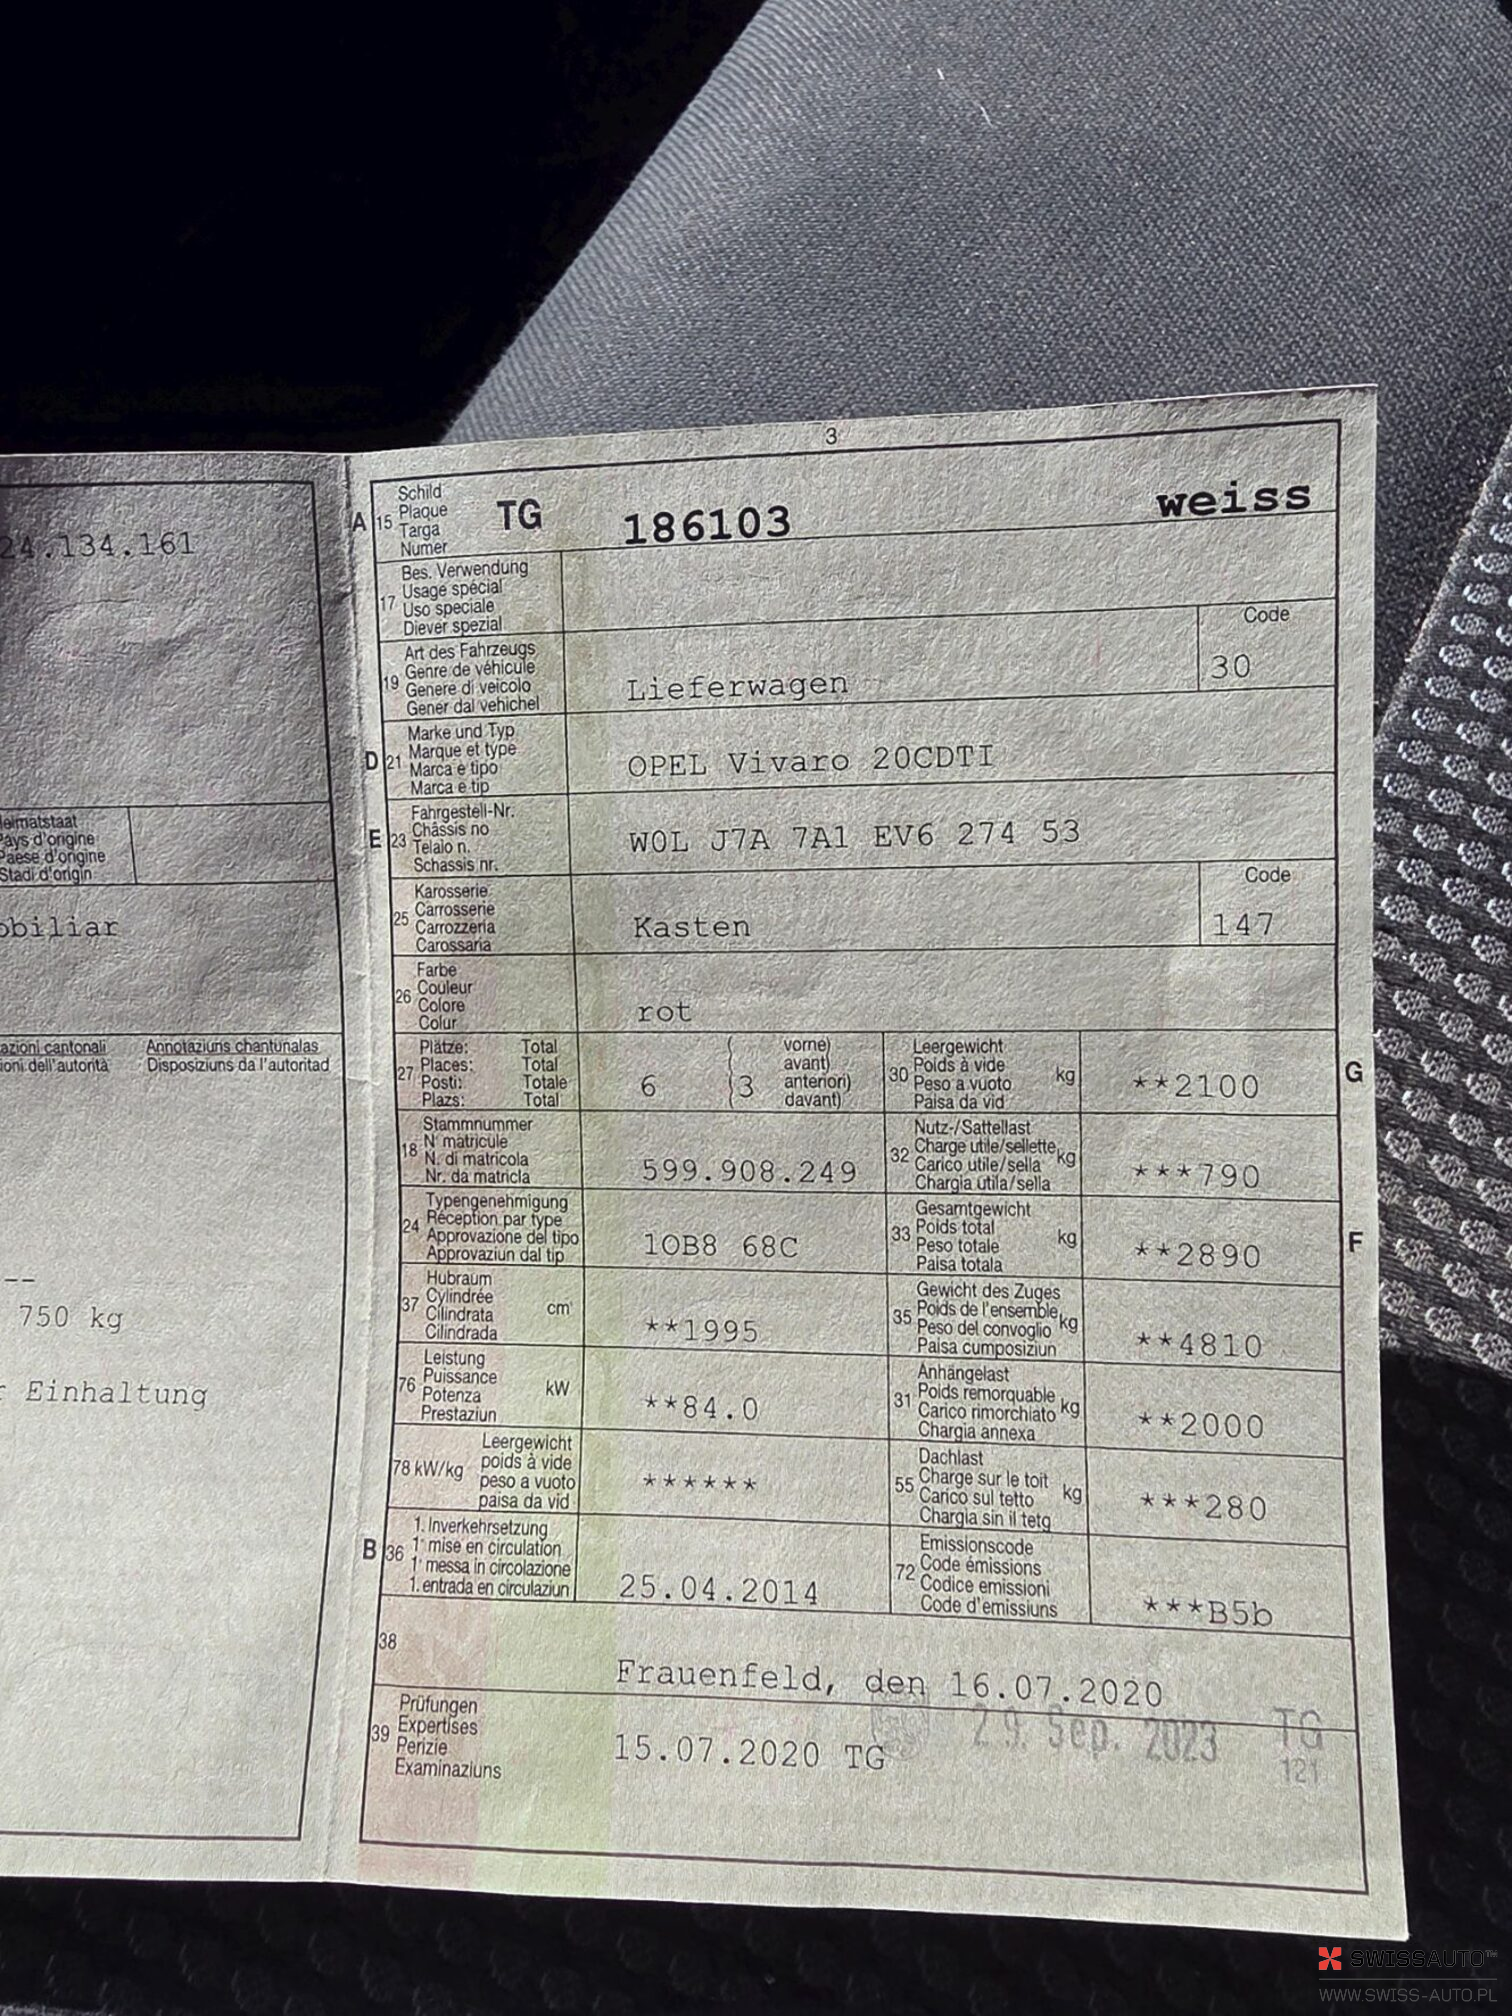 24.134.161
Heimatstaat
Pays d'origine
Paese d'origine
Stadi d'origin
obiliar
azioni cantonali
ioni dell'autorità
Annotaziuns chantunalas
Disposiziuns da l'autoritad
--
750 kg
r Einhaltung
3
A 15 Schild
Plaque
Targa
Numer
TG 186103 weiss
17 Bes. Verwendung
Usage spécial
Uso speciale
Diever spezial
19 Art des Fahrzeugs
Genre de véhicule
Genere di veicolo
Gener dal vehichel
Lieferwagen
Code
30
D 21 Marke und Typ
Marque et type
Marca e tipo
Marca e tip
OPEL Vivaro 20CDTI
E 23 Fahrgestell-Nr.
Châssis no
Telaio n.
Schassis nr.
W0L J7A 7A1 EV6 274 53
25 Karosserie
Carrosserie
Carrozzeria
Carossaria
Kasten
Code
147
26 Farbe
Couleur
Colore
Colur
rot
27 Plätze: Total
Places: Total
Posti: Totale
Plazs: Total
6 (3 vorne)
avant)
anteriori)
davant)
30 Leergewicht
Poids à vide
Peso a vuoto
Paisa da vid
kg
**2100
G
18 Stammnummer
N° matricule
N. di matricola
Nr. da matricla
599.908.249
32 Nutz-/Sattellast
Charge utile/sellette
Carico utile/sella
Chargia utila/sella
kg
***790
24 Typengenehmigung
Réception par type
Approvazione del tipo
Approvaziun dal tip
1OB8 68C
33 Gesamtgewicht
Poids total
Peso totale
Paisa totala
kg
**2890
F
37 Hubraum
Cylindrée
Cilindrata
Cilindrada
cm³
**1995
35 Gewicht des Zuges
Poids de l'ensemble
Peso del convoglio
Paisa cumposiziun
kg
**4810
76 Leistung
Puissance
Potenza
Prestaziun
kW
**84.0
31 Anhängelast
Poids remorquable
Carico rimorchiato
Chargia annexa
kg
**2000
78 kW/kg Leergewicht
poids à vide
peso a vuoto
paisa da vid
******
55 Dachlast
Charge sur le toit
Carico sul tetto
Chargia sin il tetg
kg
***280
B 36 1. Inverkehrsetzung
1° mise en circulation
1° messa in circolazione
1. entrada en circulaziun
25.04.2014
72 Emissionscode
Code émissions
Codice emissioni
Code d'emissiuns
***B5b
38
Frauenfeld, den 16.07.2020
39 Prüfungen
Expertises
Perizie
Examinaziuns
15.07.2020 TG
29. Sep. 2023 TG
121
SWISSAUTO™
WWW.SWISS-AUTO.PL